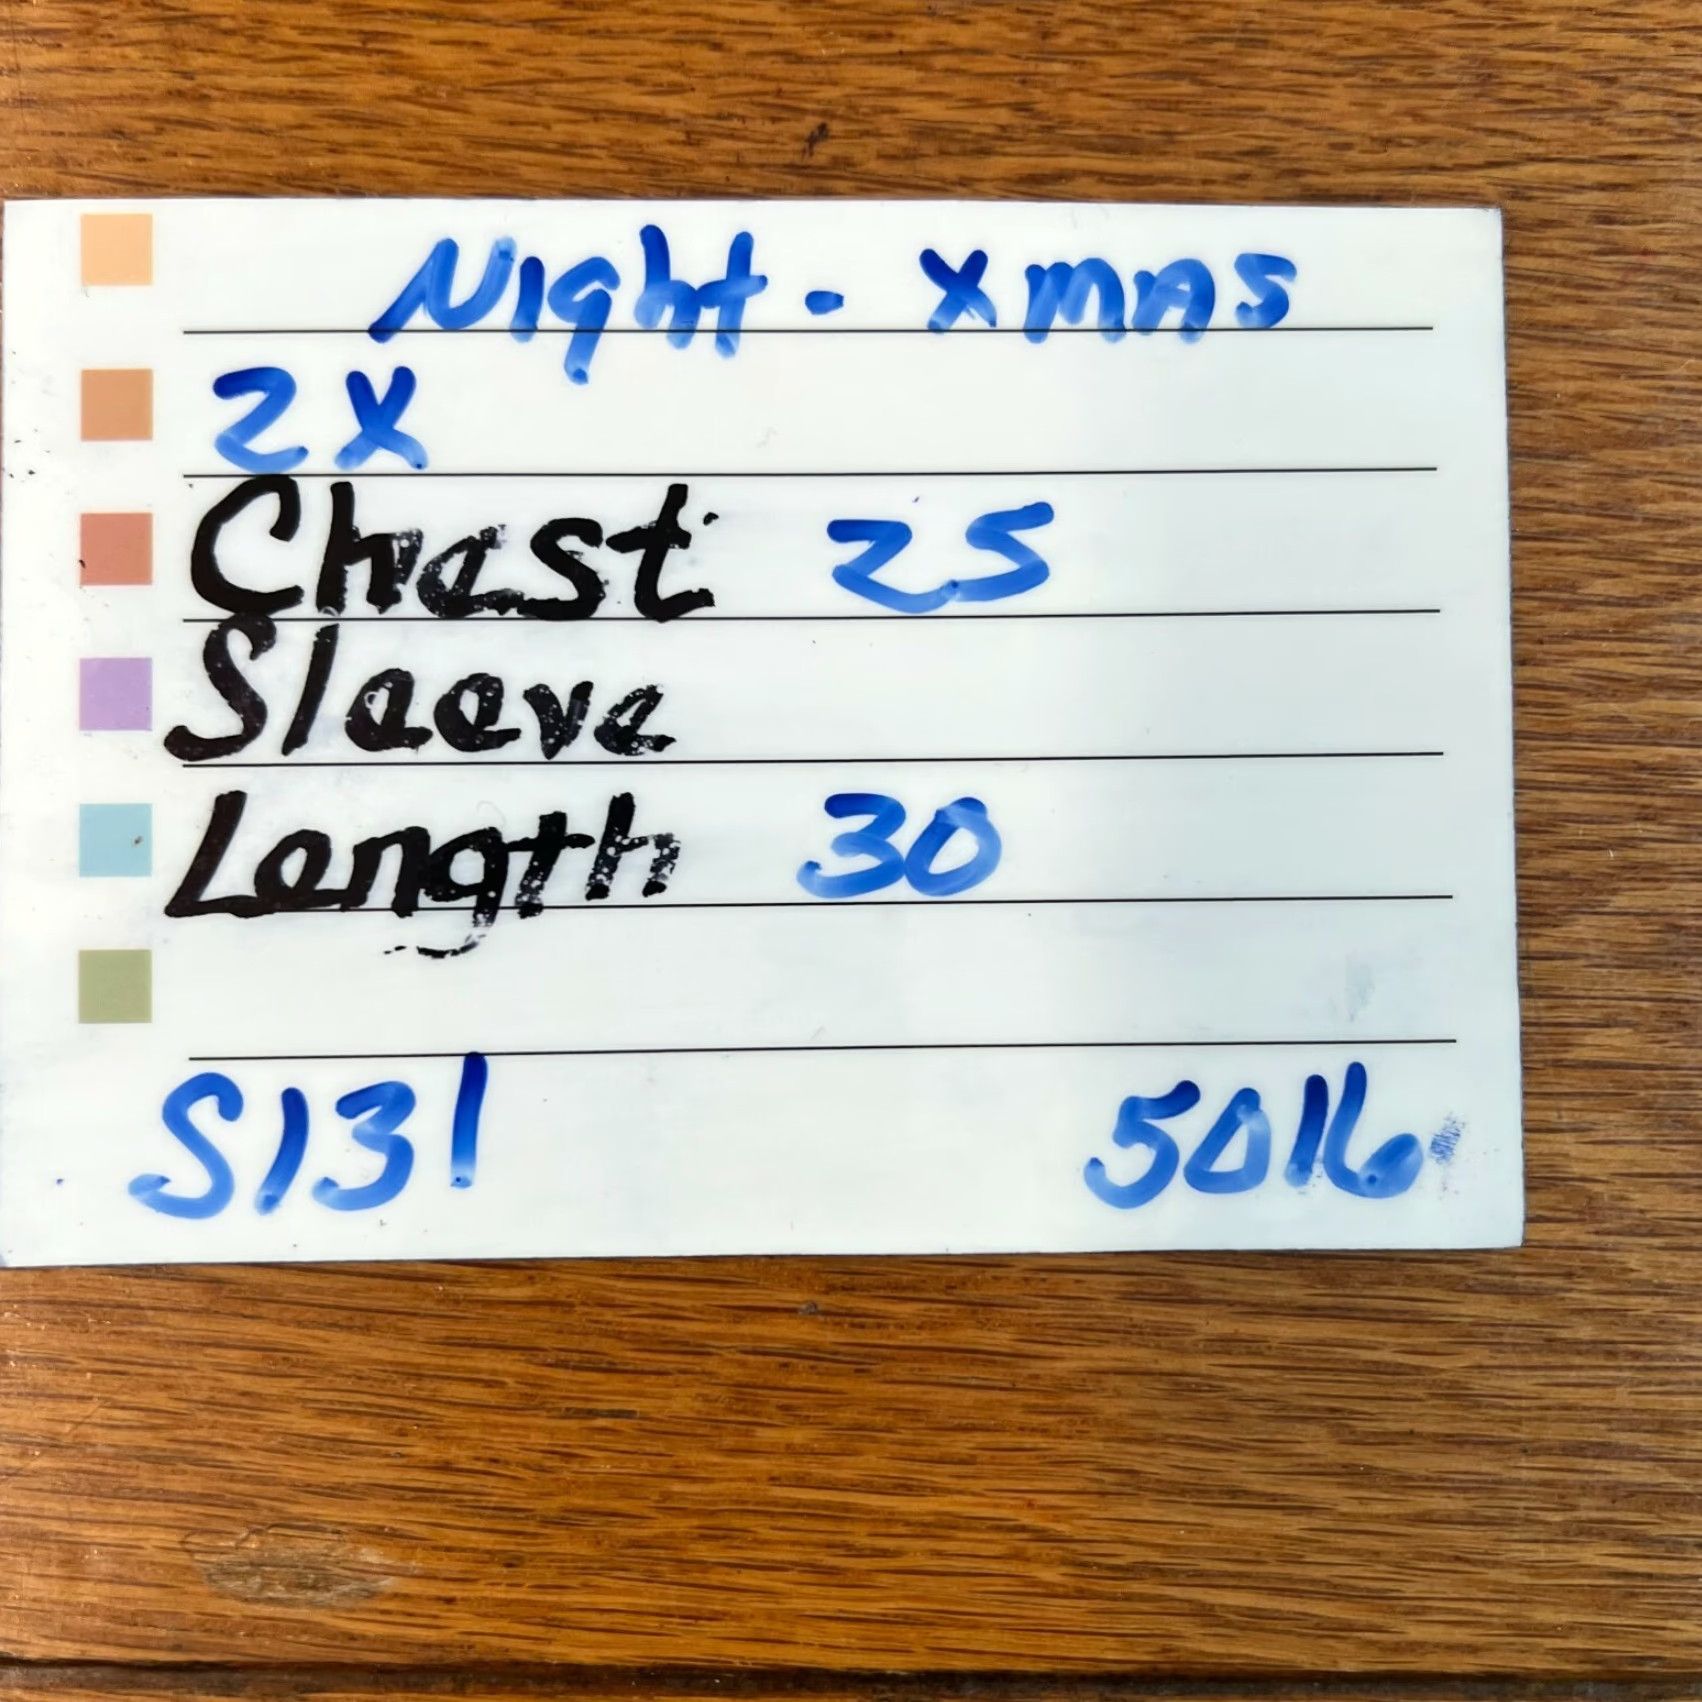 Night - Xmas
2X
Chest 25
Sleeve
Length 30
S131 5016